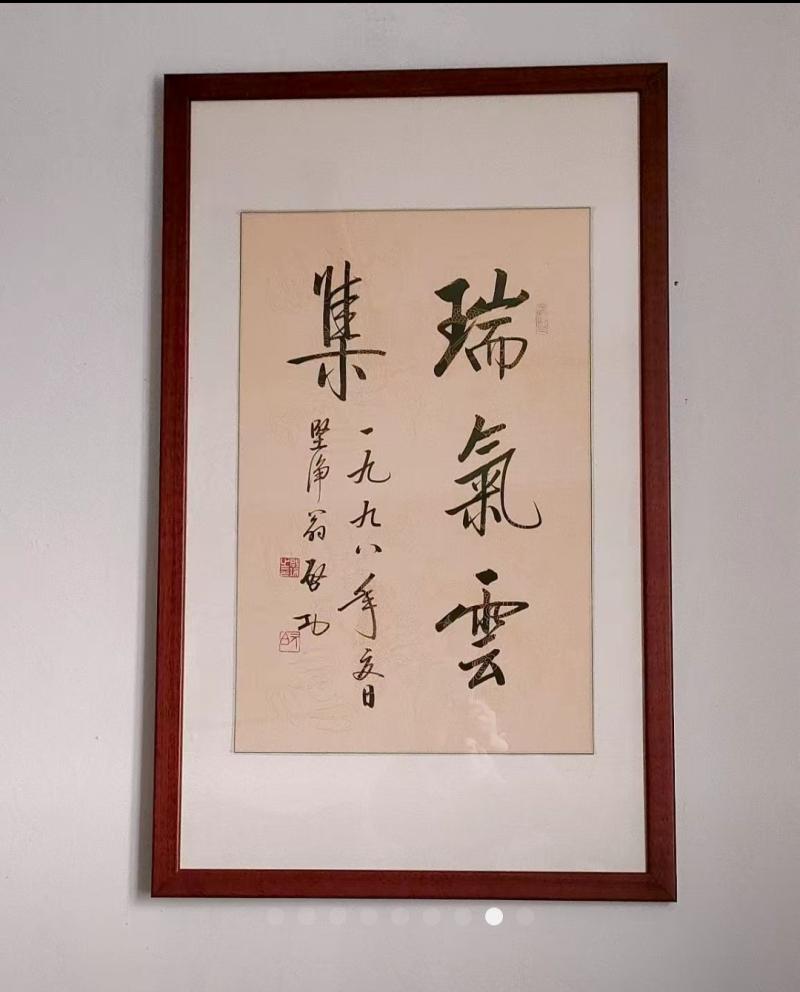 瑞氣雲
集
一九九八年夏日
堅净翁啓功